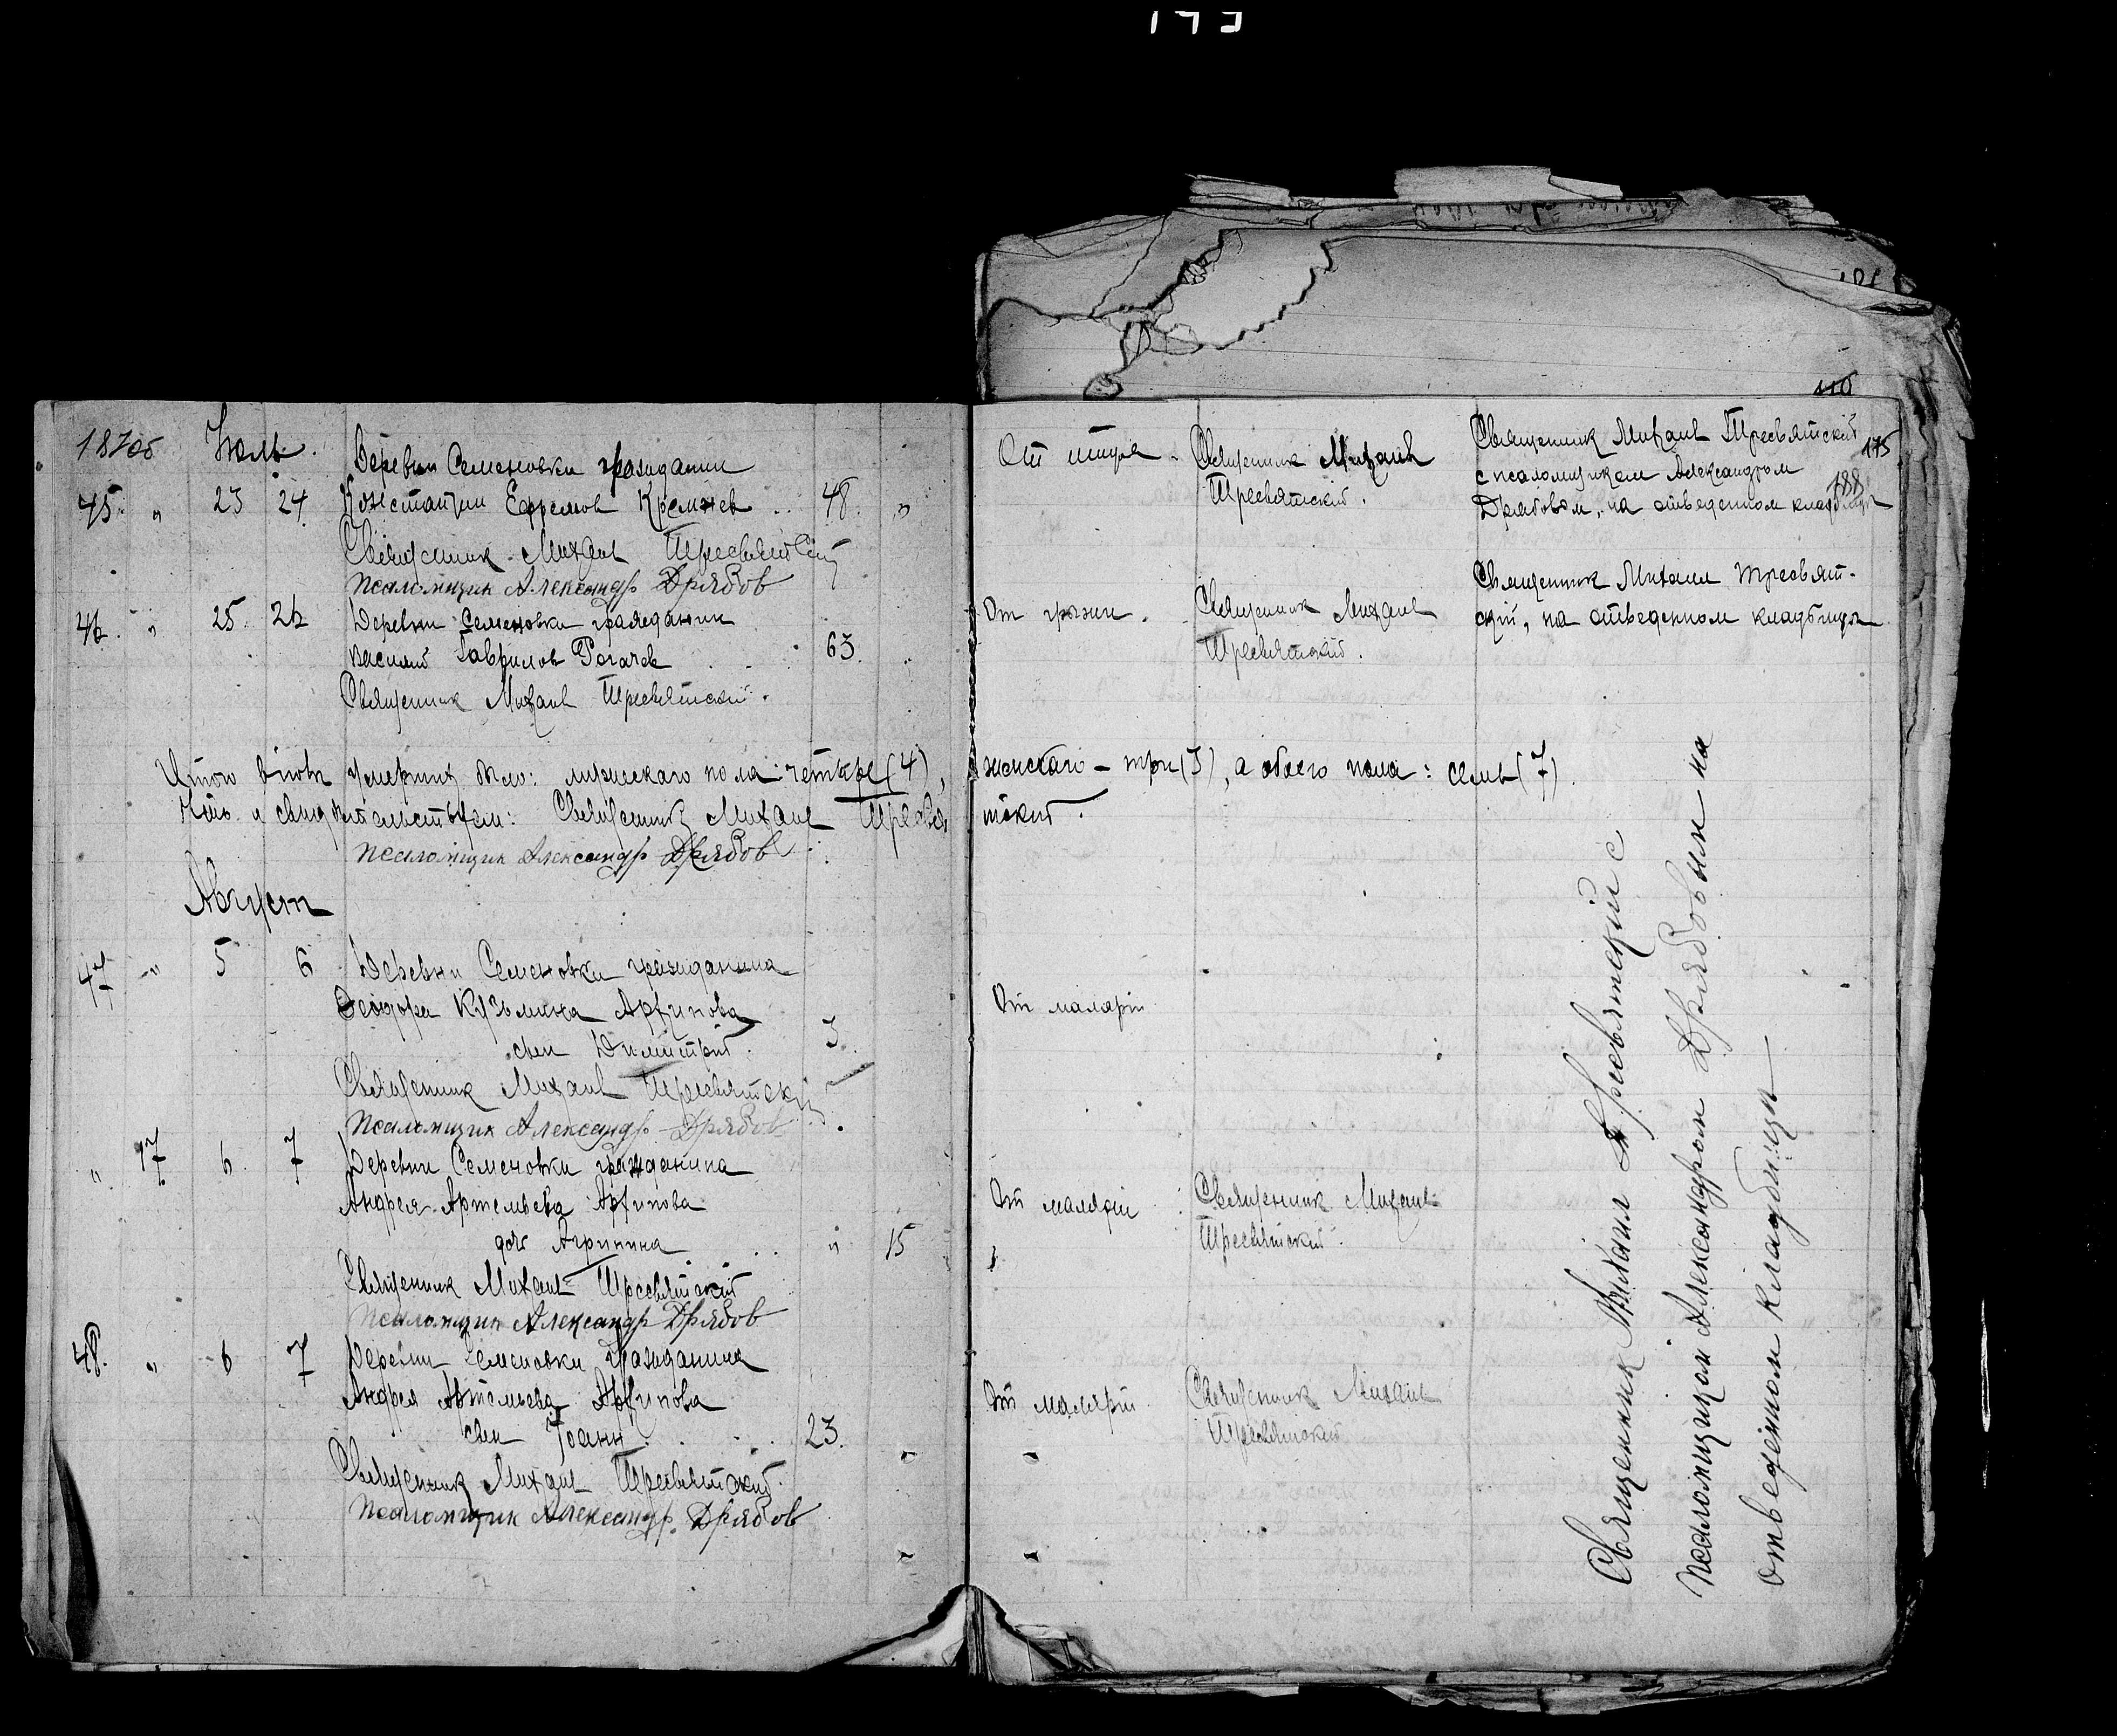 175
110
175
188
Июль.
Деревни Семеновки гражданин
45. " 23 24 Константин Ефремов .. 48. "
Священник Михаил Тресвятский
псаломщик Александр Дрябов
46. " 25. 26 Деревни Семеновки гражданин
Василий Гаврилов Рогачев . . 63. "
Священник Михаил Тресвятский.
Итого умерших было: мужескаго пола: четыре (4),
Священник Михаил Тресвя
псаломщик Александр Дрябов
Август
47 " 5 6 Деревни Семеновки гражданина
Феодора Кузьмина
сын Димитрий. 3.
Священник Михаил Тресвятский
Псаломщик Александр Дрябов
" 17. 6. 7 Деревни Семеновки гражданина
Андрея Артемьева
дочь .. " 15
Священник Михаил Тресвятский
Псаломщик Александр Дрябов
48. " 6 7 Деревни Семеновки гражданина
Андрея Артемьева
сын Іоанн . . . 23.
Священник Михаил Тресвятский.
Псаломщик Александр Дрябов
От . Священник Михаил
Тресвятский.
Священник Михаил Тресвятский
с псаломщиком Александром
Дрябовым, на отведенном кладбище
От грыжи. Священник Михаил
Тресвятский.
Священник Михаил Тресвят-
ский, на отведенном кладбище
женскаго – три (3), а обоего пола: семь (7).
тский.
От малярии
От малярии Священник Михаил
Тресвятский.
От малярии Священник Михаил
Тресвятский
Священник Михаил Тресвятский с
псаломщиком Александром Дрябовым на
отведенном кладбище